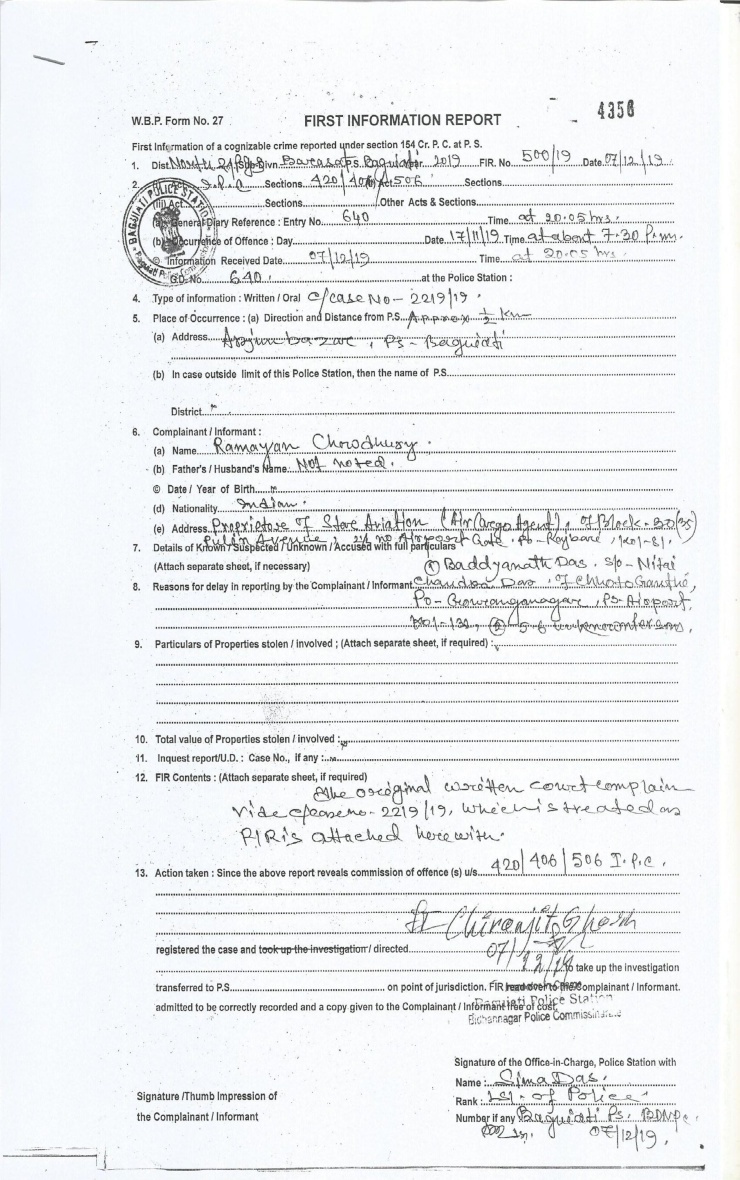 4356
W.B.P. Form No. 27 FIRST INFORMATION REPORT
First Information of a cognizable crime reported under section 154 Cr. P. C. at P. S.
1. Dist. North 24 Pgs Sub-Divn. Barasat P.S. Baguiati Year 2019 FIR. No. 500/19 Date 07/12/19
2. I.P.C Sections 420/406/506 Sections
(iii) Act Sections Other Acts & Sections
General Diary Reference : Entry No. 640 Time at 20.05 hrs.
(b) Occurrence of Offence : Day Date 17/11/19 Time at about 7.30 P.m.
© Information Received Date 07/12/19 Time at 20.05 hrs.
G.D. No. 640. at the Police Station :
BAGUIATI POLICE STATION
4. Type of information : Written / Oral c/case No - 2219/19.
5. Place of Occurrence : (a) Direction and Distance from P.S. Approx ½ km
(a) Address Arjunbazar, Ps - Baguiati
(b) In case outside limit of this Police Station, then the name of P.S.
District
6. Complainant / Informant :
(a) Name Ramayan Chowdhury.
(b) Father's / Husband's Name Not noted.
© Date / Year of Birth
(d) Nationality Indian.
(e) Address Proprietor of Stare Aviation (Air Cargo Agent), of Block - 30(35)
Avenue, 2½ no Airport Gate, Po - , Kol-81.
7. Details of Known / Suspected / Unknown / Accused with full particulars
(Attach separate sheet, if necessary) ① Baddyanath Das. S/o - Nitai
8. Reasons for delay in reporting by the Complainant / Informant Chandra Das, of
Po - Gouranganagar, Ps Airport,
② 5-6 unknown person.
9. Particulars of Properties stolen / involved ; (Attach separate sheet, if required) :
10. Total value of Properties stolen / involved :
11. Inquest report/U.D. : Case No., if any :
12. FIR Contents : (Attach separate sheet, if required)
The original written court complain
vide c/case no - 2219/19, which is treated as
FIR is attached herewith.
13. Action taken : Since the above report reveals commission of offence (s) u/s. 420/406/506 I.P.C.
Chiranjit Ghosh
registered the case and took up the investigation / directed 07/12/19
to take up the investigation
transferred to P.S. on point of jurisdiction. FIR read over to the Complainant / Informant.
admitted to be correctly recorded and a copy given to the Complainant / Informant free of cost.
Baguiati Police Station
Bidhannagar Police Commissionerate
Signature of the Office-in-Charge, Police Station with
Name : Sima Das.
Signature /Thumb Impression of
Rank : of Police
the Complainant / Informant
Number if any Baguiati Ps. BDNPC
07/12/19.